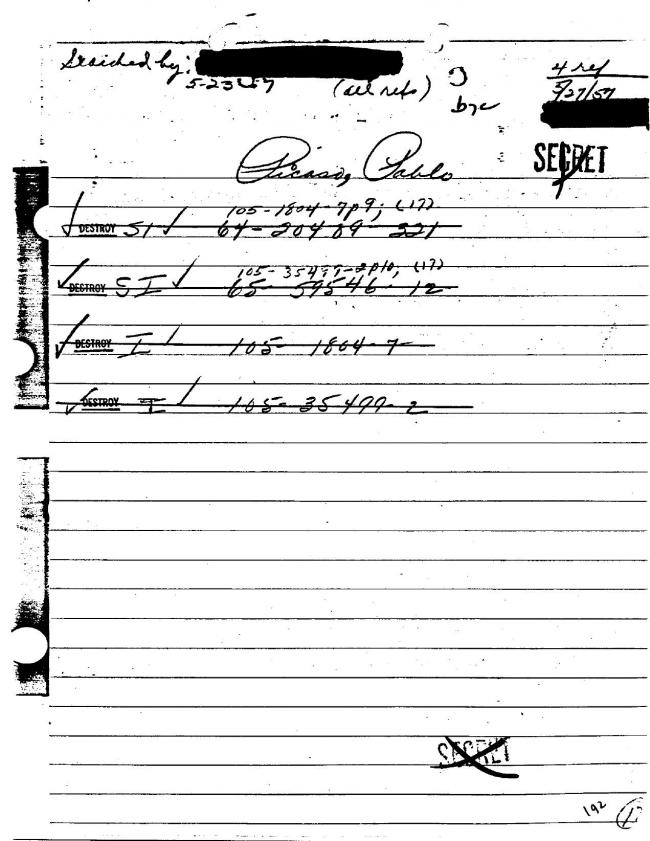 Searched by:
5-23-57 (all refs)
4 ref
5/27/57
SECRET
Picasso, Pablo
105-1804-7p9; (17)
DESTROY SI 64-20489-221
105-35499-2p10, (17)
DESTROY SI 65-59546-12
DESTROY I 105-1804-7
DESTROY I 105-35499-2
SECRET
192